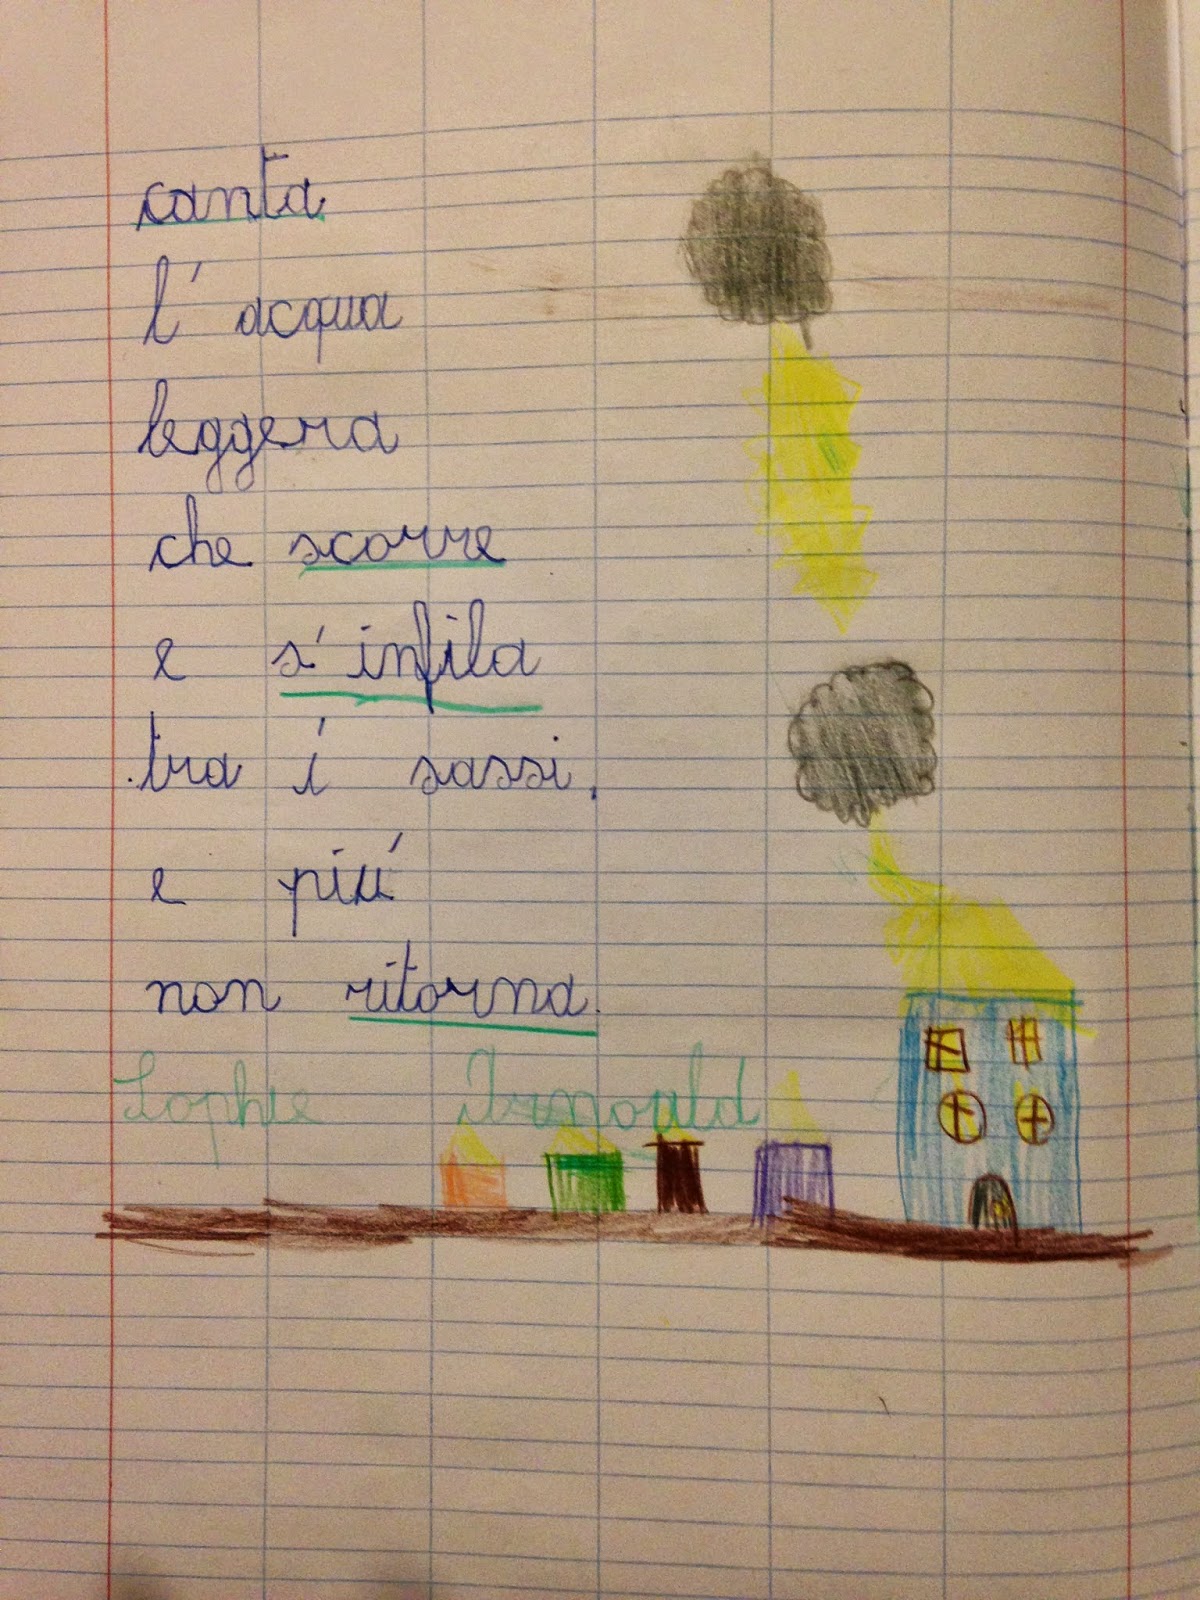 canta
l'acqua
leggera
che scorre
e s'infila
tra i sassi,
e piú
non ritorna.
Sophie Arnould